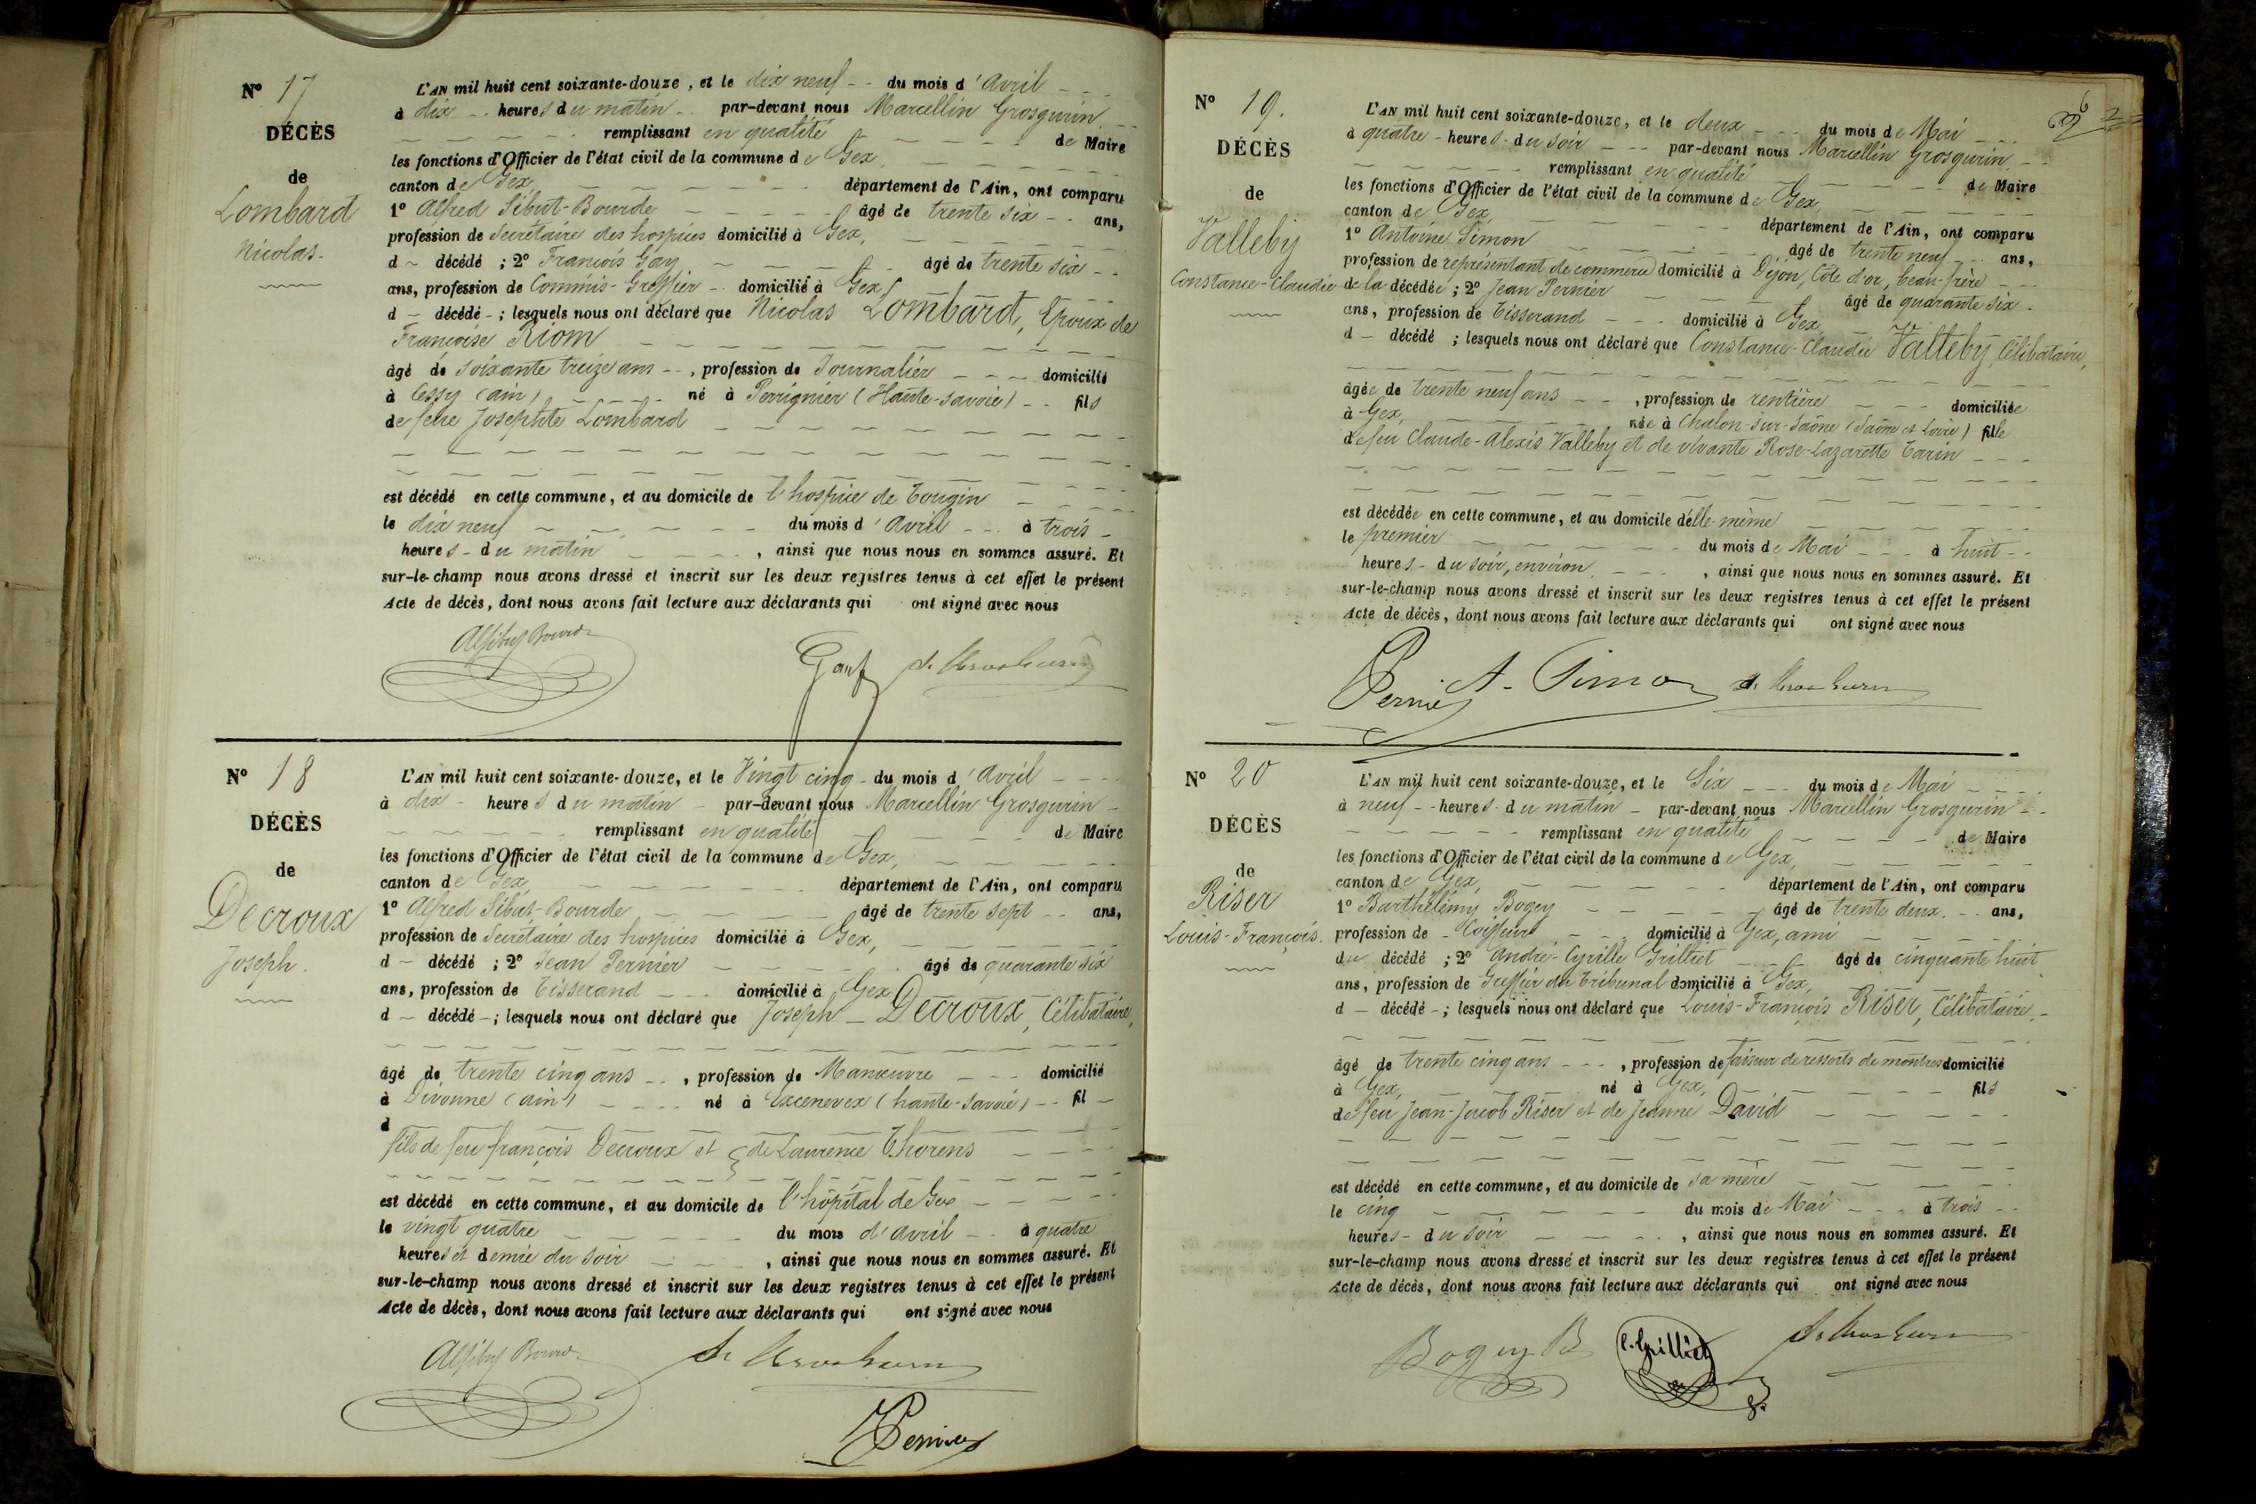 N° 17
DÉCÈS
de
Lombard
Nicolas.
L'AN mil huit cent soixante-douze, et le dix neuf - - du mois d'Avril - - -
à dix - - heures du matin - - par-devant nous Marcellin Grosgurin - -
- - - - remplissant en qualité - - - - de Maire
les fonctions d'Officier de l'état civil de la commune de Gex, - - - -
canton de Gex, - - - - département de l'Ain, ont comparu
1° Alfred Sibut-Bourde - - - - âgé de trente six - - ans,
profession de Secrétaire des hospices domicilié à Gex, - - - -
d - décédé ; 2° François Gay - - - - âgé de trente six - -
ans, profession de Commis-Greffier - domicilié à Gex, - - -
d - décédé - ; lesquels nous ont déclaré que Nicolas Lombard, Epoux de
Françoise Riom - - - - - - - -
âgé de soixante treize ans - - , profession de Journalier - - - domicilié
à Cessy (ain) - - - - né à Perrignier (Haute-savoie) - - fils
de feue Josephte Lombard - - - - - - -
est décédé en cette commune, et au domicile de l'hospice de Tougin - - - -
le dix neuf - - - - du mois d'Avril - - - à trois -
heures - du matin - - - - , ainsi que nous nous en sommes assuré. Et
sur-le-champ nous avons dressé et inscrit sur les deux registres tenus à cet effet le présent
Acte de décès, dont nous avons fait lecture aux déclarants qui ont signé avec nous
Gay
N° 18
DÉCÈS
de
Decroux
Joseph.
L'AN mil huit cent soixante-douze, et le Vingt cinq - du mois d'Avril - - - -
à dix - heures du matin - par-devant nous Marcellin Grosgurin -
- - - - remplissant en qualité - - - - de Maire
les fonctions d'Officier de l'état civil de la commune de Gex, - - - -
canton de Gex, - - - - département de l'Ain, ont comparu
1° Alfred Sibut-Bourde - - - - âgé de trente sept - - ans,
profession de Secrétaire des hospices domicilié à Gex, - - - -
d - décédé ; 2° Jean Pernier - - - - âgé de quarante six
ans, profession de Tisserand - - - domicilié à Gex
d - décédé - ; lesquels nous ont déclaré que Joseph - Decroux, Célibataire,
âgé de trente cinq ans - - , profession de Manœuvre - - - domicilié
à Divonne (ain) - - - - né à Excenevex (haute-savoie) - - fil -
d - - - - - - -
fils de feu françois Decroux et de Laurence Thorens - - - -
est décédé en cette commune, et au domicile de l'hôpital de Gex - - - -
le vingt quatre - - - - du mois d'avril - - à quatre
heures et demie du soir - - - , ainsi que nous nous en sommes assuré. Et
sur-le-champ nous avons dressé et inscrit sur les deux registres tenus à cet effet le présent
Acte de décès, dont nous avons fait lecture aux déclarants qui ont signé avec nous
Pernier
N° 19.
DÉCÈS
de
Valleby
Constance-Claudie
L'AN mil huit cent soixante-douze, et le deux - - - du mois de Mai - - -
à quatre - heures - du soir - - - par-devant nous Marcellin Grosgurin - -
- - - - remplissant en qualité - - - - de Maire
les fonctions d'Officier de l'état civil de la commune de Gex, - - - -
canton de Gex, - - - - département de l'Ain, ont comparu
1° Antoine Simon - - - - âgé de trente neuf - - ans,
profession de représentant de commerce domicilié à Dijon, Côte d'or, beau-frère - -
de la décédée ; 2° Jean Pernier - - - - âgé de quarante six -
ans, profession de Tisserand - - - domicilié à Gex, - - -
d - décédé ; lesquels nous ont déclaré que Constance-Claudie Valleby, Célibataire,
âgée de trente neuf ans - - , profession de rentière - - - domiciliée
à Gex, - - - - née à Chalon-sur-Saône (Saône et Loire) fille
de feu Claude-Alexis Valleby et de vivante Rose-Lazarette Tarin - - -
est décédée en cette commune, et au domicile d'elle-même - - - -
le premier - - - - du mois de Mai - - - à huit - -
heures - du soir, environ - - - , ainsi que nous nous en sommes assuré. Et
sur-le-champ nous avons dressé et inscrit sur les deux registres tenus à cet effet le présent
Acte de décès, dont nous avons fait lecture aux déclarants qui ont signé avec nous
Pernier A. Simon
N° 20
DÉCÈS
de
Riser
Louis-François.
L'AN mil huit cent soixante-douze, et le Six - - - du mois de Mai - - - -
à neuf - - heures - du matin - par-devant nous Marcellin Grosgurin - -
- - - - remplissant en qualité - - - - de Maire
les fonctions d'Officier de l'état civil de la commune de Gex, - - - -
canton de Gex, - - - - département de l'Ain, ont comparu
1° Barthélémy Bogey - - - - âgé de trente deux - - ans,
profession de - Coiffeur - - - domicilié à Gex, ami - - - -
du décédé ; 2° André-Cyrille Grilliet - - - âgé de cinquante huit
ans, profession de Greffier du tribunal domicilié à Gex, - - -
d - décédé - ; lesquels nous ont déclaré que Louis-François Riser, Célibataire, -
âgé de trente cinq ans - - - , profession de faiseur de ressorts de montres domicilié
à Gex, - - - - né à Gex, - - - - fils
de feu Jean-Jacob Riser et de Jeanne David - - - -
est décédé en cette commune, et au domicile de sa mère - - - -
le cinq - - - - du mois de Mai - - - à trois - -
heures - du soir - - - - , ainsi que nous nous en sommes assuré. Et
sur-le-champ nous avons dressé et inscrit sur les deux registres tenus à cet effet le présent
Acte de décès, dont nous avons fait lecture aux déclarants qui ont signé avec nous
Bogey B C. Grilliet